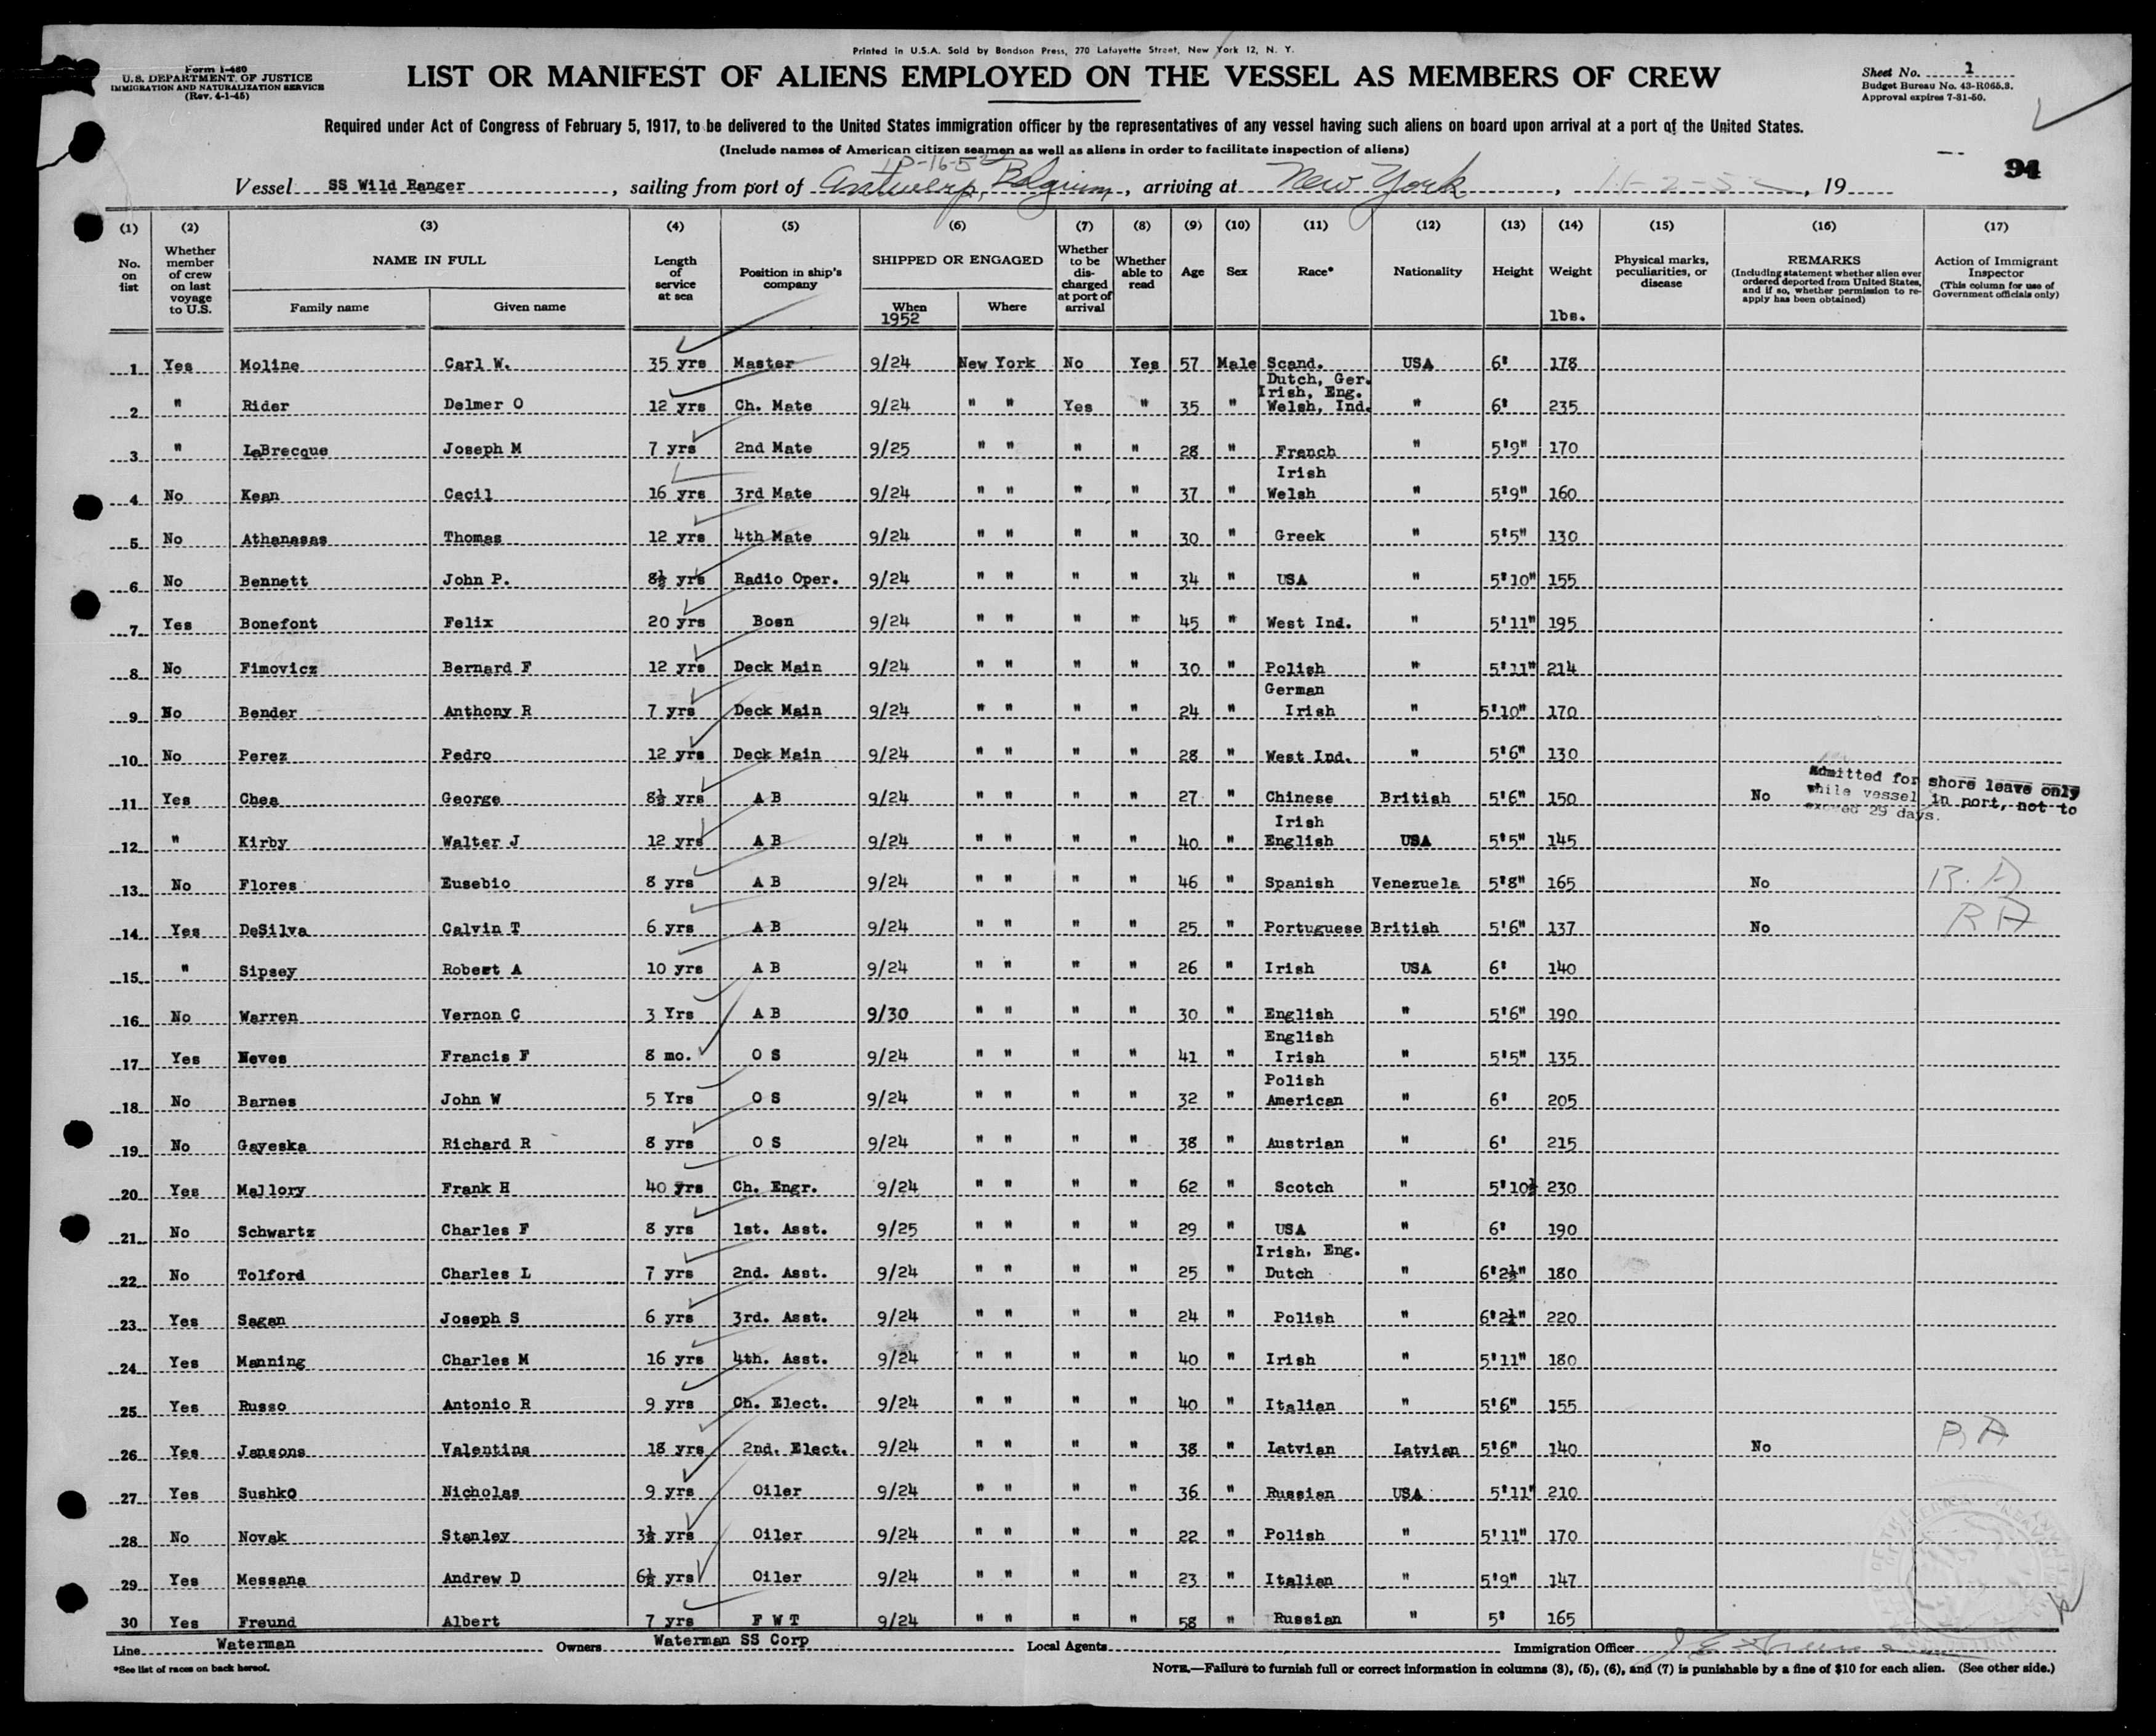 Printed in U.S.A. Sold by Bondson Press, 270 Lafayette Street, New York 12, N. Y.
Form I-480
U. S. DEPARTMENT OF JUSTICE
IMMIGRATION AND NATURALIZATION SERVICE
(Rev. 4-1-45)
LIST OR MANIFEST OF ALIENS EMPLOYED ON THE VESSEL AS MEMBERS OF CREW
Sheet No. 1
Budget Bureau No. 43-R065.3.
Approval expires 7-31-50.
Required under Act of Congress of February 5, 1917, to be delivered to the United States immigration officer by the representatives of any vessel having such aliens on board upon arrival at a port of the United States.
(Include names of American citizen seamen as well as aliens in order to facilitate inspection of aliens)
94
Vessel SS Wild Ranger, sailing from port of Antwerp, Belgium, arriving at New York, 11-2-52, 19
(1) (2) (3) (4) (5) (6) (7) (8) (9) (10) (11) (12) (13) (14) (15) (16) (17)
No. on list Whether member of crew on last voyage to U.S. NAME IN FULL Family name Given name Length of service at sea Position in ship's company SHIPPED OR ENGAGED When 1952 Where Whether to be discharged at port of arrival Whether able to read Age Sex Race* Nationality Height Weight lbs. Physical marks, peculiarities, or disease REMARKS (Including statement whether alien ever ordered deported from United States, and if so, whether permission to reapply has been obtained) Action of Immigrant Inspector (This column for use of Government officials only)
1 Yes Moline Carl W. 35 yrs Master 9/24 New York No Yes 57 Male Scand. USA 6' 178
Dutch, Ger.
Irish, Eng.
2 " Rider Delmer O 12 yrs Ch. Mate 9/24 " " Yes " 35 " Welsh, Ind. " 6' 235
3 " LaBrecque Joseph M 7 yrs 2nd Mate 9/25 " " " " 28 " French " 5'9" 170
Irish
4 No Kean Cecil 16 yrs 3rd Mate 9/24 " " " " 37 " Welsh " 5'9" 160
5 No Athanasas Thomas 12 yrs 4th Mate 9/24 " " " " 30 " Greek " 5'5" 130
6 No Bennett John P. 8½ yrs Radio Oper. 9/24 " " " " 34 " USA " 5'10" 155
7 Yes Bonefont Felix 20 yrs Bosn 9/24 " " " " 45 " West Ind. " 5'11" 195
8 No Fimovicz Bernard F 12 yrs Deck Main 9/24 " " " " 30 " Polish " 5'11" 214
German
9 No Bender Anthony R 7 yrs Deck Main 9/24 " " " " 24 " Irish " 5'10" 170
10 No Perez Pedro 12 yrs Deck Main 9/24 " " " " 28 " West Ind. " 5'6" 130
11 Yes Chea George 8½ yrs A B 9/24 " " " " 27 " Chinese British 5'6" 150 No Admitted for shore leave only
while vessel in port, not to
exceed 29 days.
Irish
12 " Kirby Walter J 12 yrs A B 9/24 " " " " 40 " English USA 5'5" 145
13 No Flores Eusebio 8 yrs A B 9/24 " " " " 46 " Spanish Venezuela 5'8" 165 No
14 Yes DeSilva Calvin T 6 yrs A B 9/24 " " " " 25 " Portuguese British 5'6" 137 No
15 " Sipsey Robert A 10 yrs A B 9/24 " " " " 26 " Irish USA 6' 140
16 No Warren Vernon C 3 Yrs A B 9/30 " " " " 30 " English " 5'6" 190
English
17 Yes Neves Francis F 8 mo. O S 9/24 " " " " 41 " Irish " 5'5" 135
Polish
18 No Barnes John W 5 Yrs O S 9/24 " " " " 32 " American " 6' 205
19 No Gayeska Richard R 8 yrs O S 9/24 " " " " 38 " Austrian " 6' 215
20 Yes Mallory Frank H 40 yrs Ch. Engr. 9/24 " " " " 62 " Scotch " 5'10½ 230
21 No Schwartz Charles F 8 yrs 1st. Asst. 9/25 " " " " 29 " USA " 6' 190
Irish, Eng.
22 No Tolford Charles L 7 yrs 2nd. Asst. 9/24 " " " " 25 " Dutch " 6'2½" 180
23 Yes Sagan Joseph S 6 yrs 3rd. Asst. 9/24 " " " " 24 " Polish " 6'2½" 220
24 Yes Manning Charles M 16 yrs 4th. Asst. 9/24 " " " " 40 " Irish " 5'11" 180
25 Yes Russo Antonio R 9 yrs Ch. Elect. 9/24 " " " " 40 " Italian " 5'6" 155
26 Yes Jansons Valentins 18 yrs 2nd. Elect. 9/24 " " " " 38 " Latvian Latvian 5'6" 140 No
27 Yes Sushko Nicholas 9 yrs Oiler 9/24 " " " " 36 " Russian USA 5'11" 210
28 No Novak Stanley 3½ yrs Oiler 9/24 " " " " 22 " Polish " 5'11" 170
29 Yes Messana Andrew D 6½ yrs Oiler 9/24 " " " " 23 " Italian " 5'9" 147
30 Yes Freund Albert 7 yrs F W T 9/24 " " " " 58 " Russian " 5' 165
Line Waterman Owners Waterman SS Corp Local Agents Immigration Officer
*See list of races on back hereof.
NOTE.—Failure to furnish full or correct information in columns (3), (5), (6), and (7) is punishable by a fine of $10 for each alien. (See other side.)